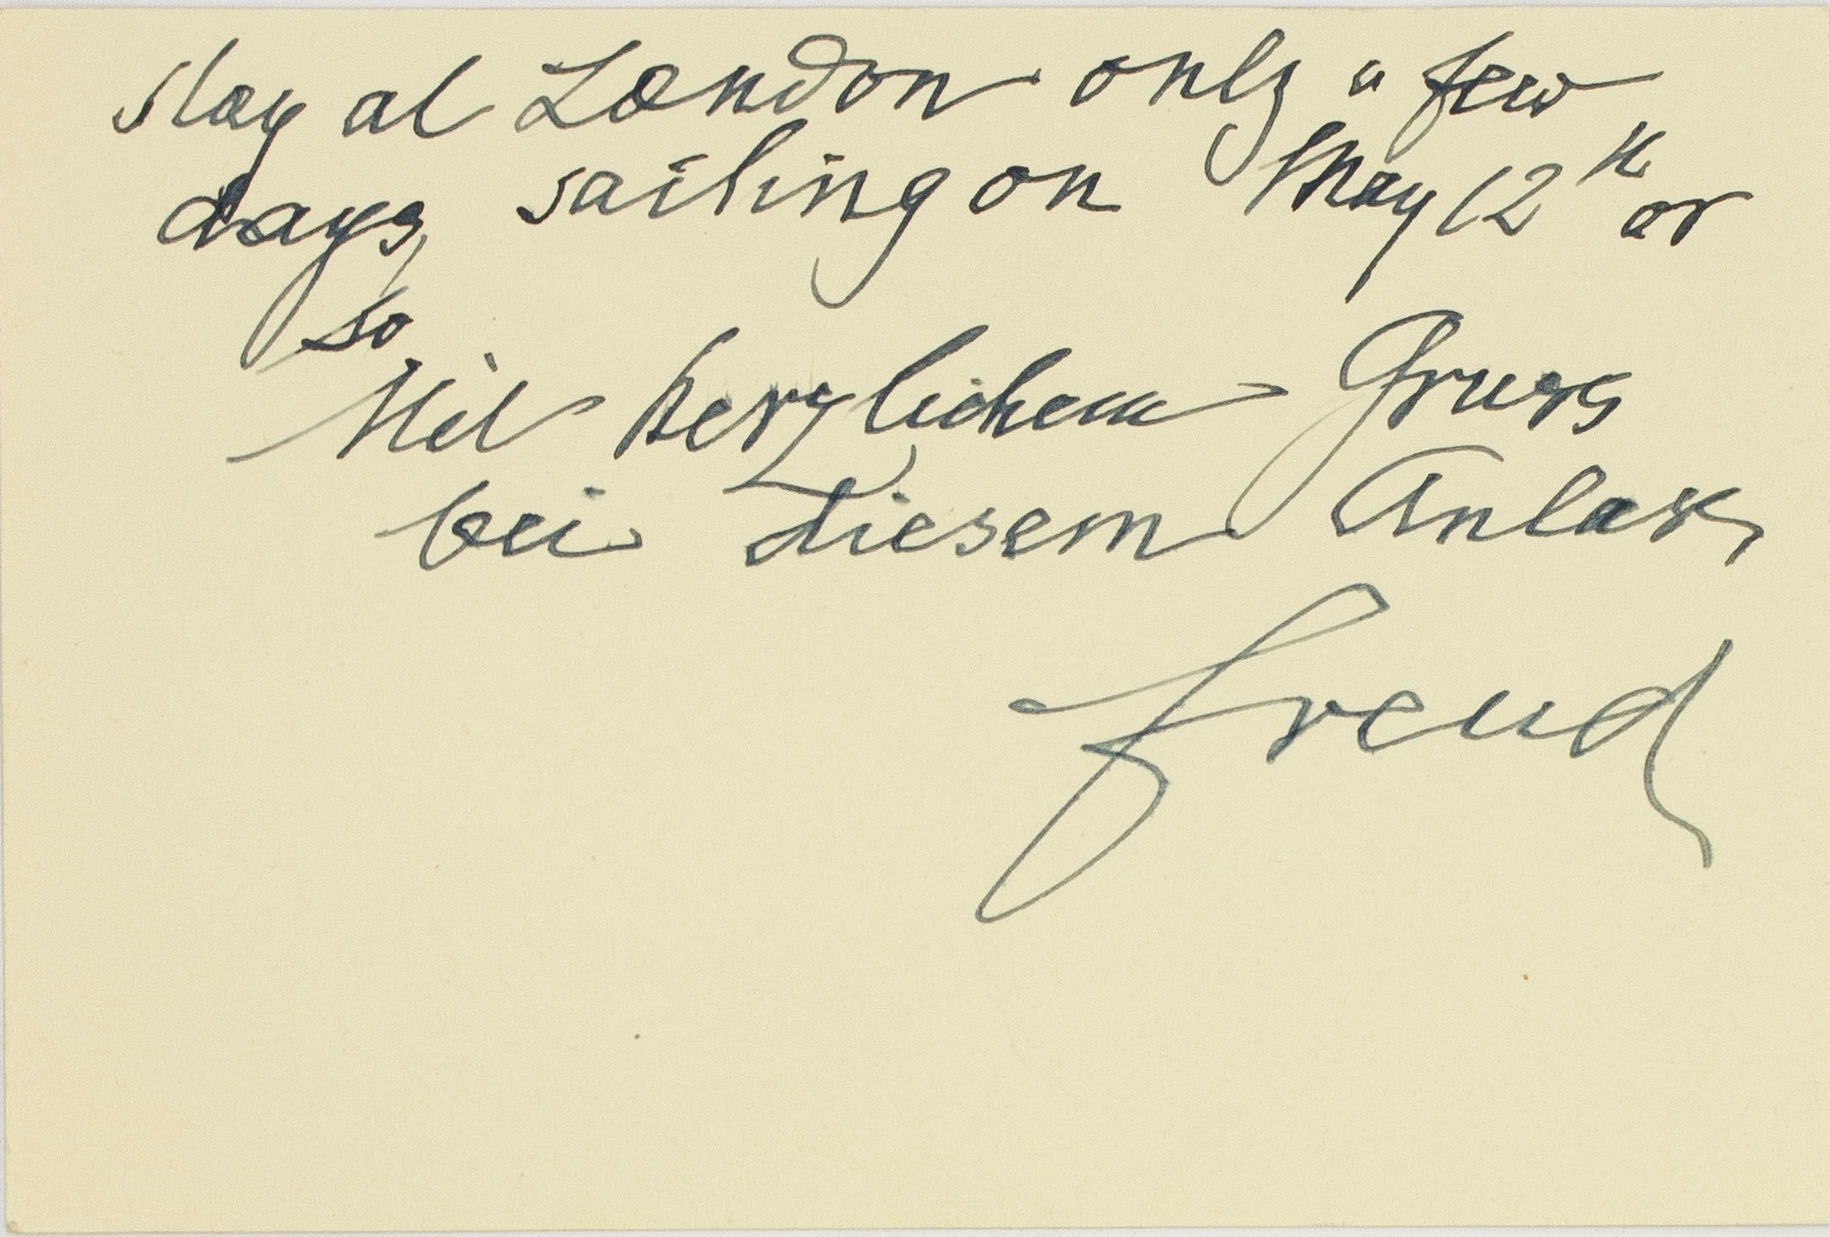 stay at London only a few
days, sailing on May 12th or
so
Mit herzlichem Gruss
bei diesem Anlass,
Freud